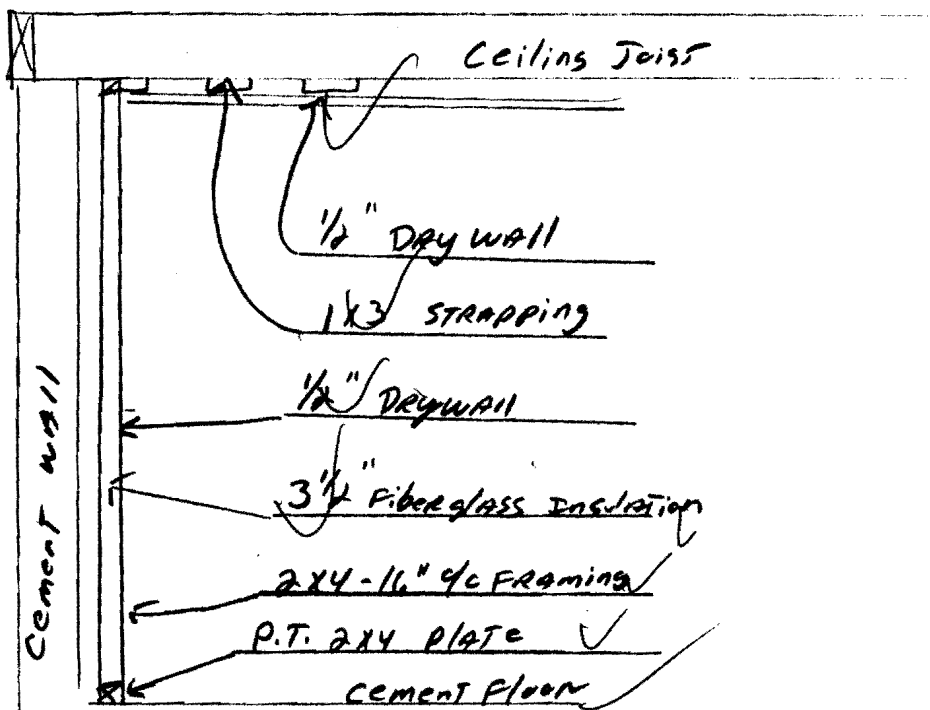 Ceiling Joist
1/2" DRYWALL
1x3 STRAPPING
1/2" DRYWALL
3 1/2" FiberglASS INSULATION
2x4-16" o/c FRAMING
P.T. 2x4 PLATE
CEMENT Floor
Cement WAll